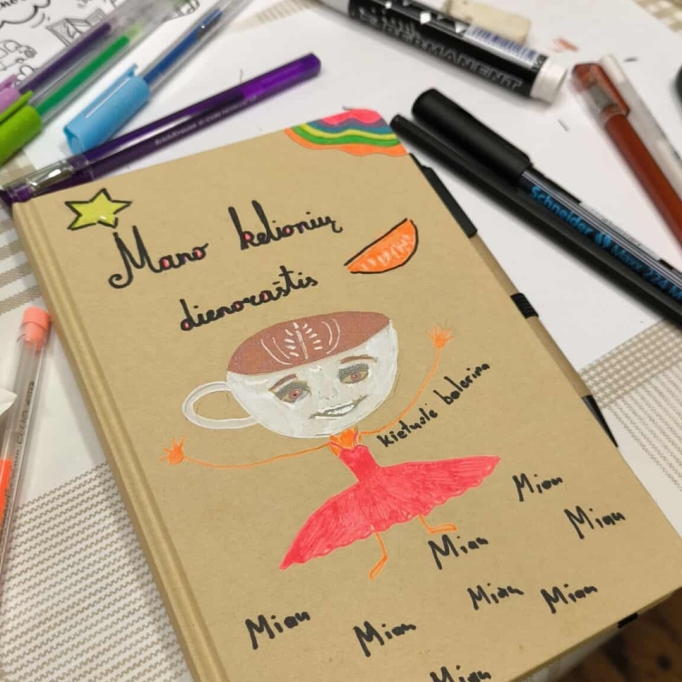 PERMANENT
Schneider
Maxx 224 M
Mano kelionių
dienoraštis
kietuolė balerina
Miau
Miau
Miau
Miau
Miau
Miau
Miau
Miau